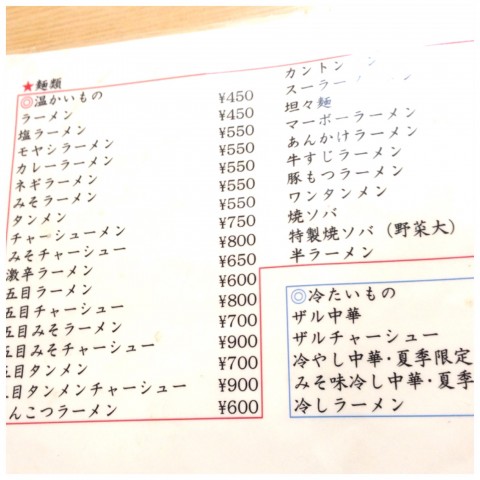 ★麺類
◎温かいもの
ラーメン ¥450
塩ラーメン ¥450
モヤシラーメン ¥550
カレーラーメン ¥550
ネギラーメン ¥550
みそラーメン ¥550
タンメン ¥550
チャーシューメン ¥750
みそチャーシュー ¥800
激辛ラーメン ¥650
五目ラーメン ¥600
五目チャーシュー ¥800
五目みそラーメン ¥700
五目みそチャーシュー ¥900
五目タンメン ¥700
目タンメンチャーシュー ¥900
んこつラーメン ¥600
カントン
スーラー
坦々麺
マーボーラーメン
あんかけラーメン
牛すじラーメン
豚もつラーメン
ワンタンメン
焼ソバ
特製焼ソバ（野菜大）
半ラーメン
◎冷たいもの
ザル中華
ザルチャーシュー
冷やし中華・夏季限定
みそ味冷し中華・夏季
冷しラーメン